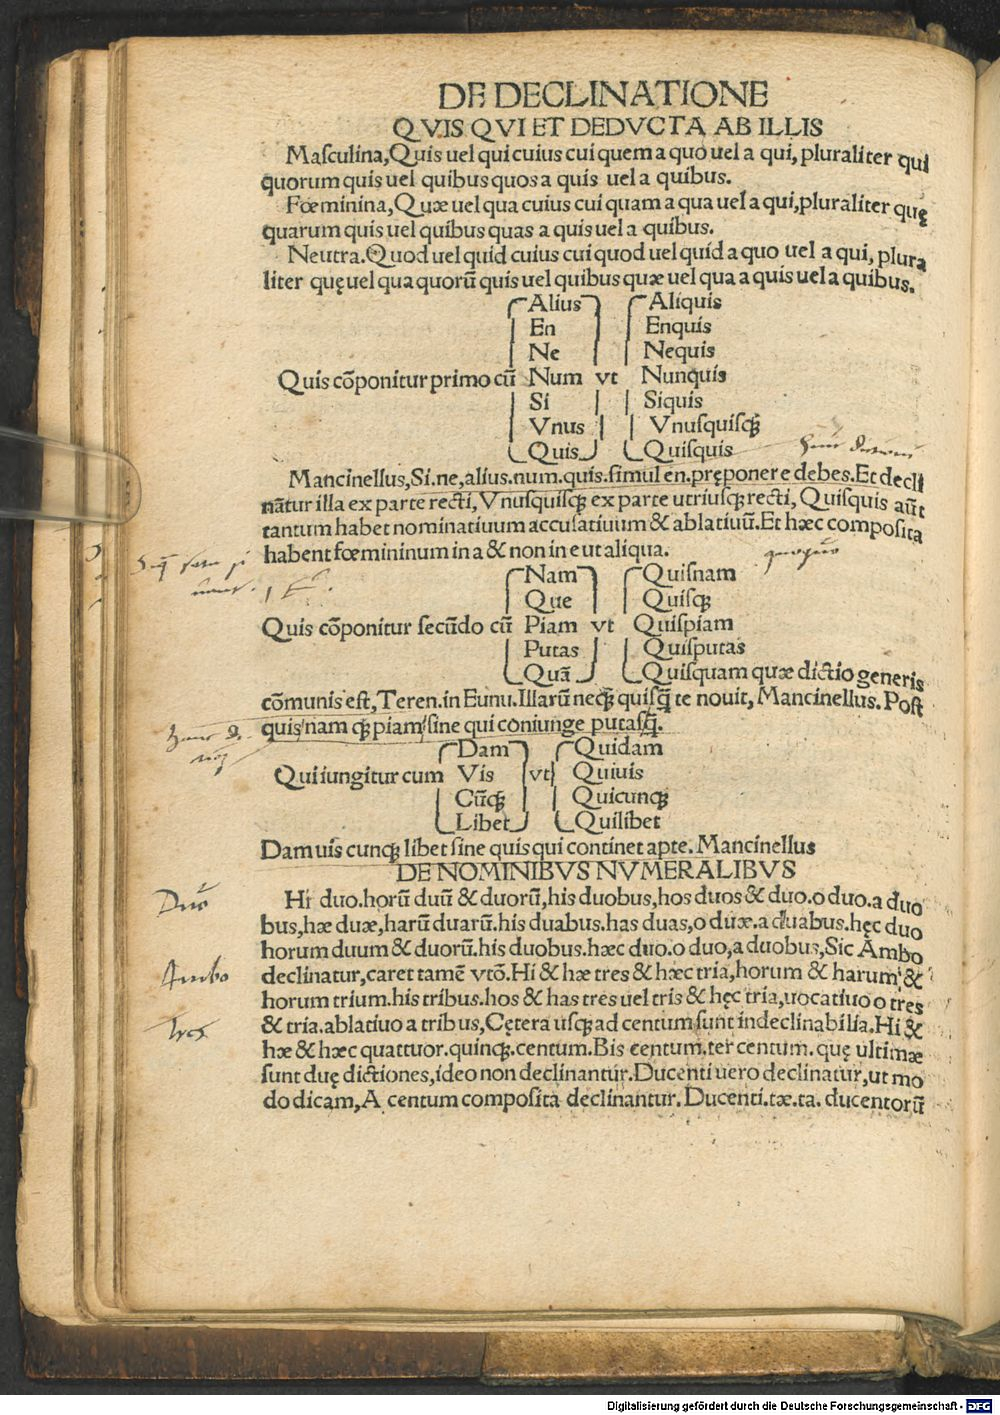 DE DECLINATIONE
QVIS QVI ET DEDVCTA AB ILLIS
Maſculina, Quis uel qui cuius cui quem a quo uel a qui, pluraliter qui
quorum quis uel quibus quos a quis uel a quibus.
Fœminina, Quæ uel qua cuius cui quam a qua uel a qui, pluraliter quę
quarum quis uel quibus quas a quis uel a quibus.
Neutra. Quod uel quid cuius cui quod uel quid a quo uel a qui, plura
liter quę uel qua quorũ quis uel quibus quæ uel qua a quis uel a quibus.
Alius Aliquis
En Enquis
Ne Nequis
Quis cõponitur primo cũ Num vt Nunquis
Si Siquis
Vnus Vnuſquiſꝗ
Quis Quiſquis
Mancinellus, Si.ne, alius.num.quis.ſimul en.pręponere debes. Et decli
nãtur illa ex parte recti, Vnuſquiſꝗ ex parte utriuſꝗ recti, Quiſquis aũt
tantum habet nominatiuum accuſatiuum & ablatiuũ. Et hæc compoſita
habent fœmininum in a & non in e ut aliqua.
Nam Quiſnam
Que Quiſꝗ
Quis cõponitur ſecũdo cũ Piam vt Quiſpiam
Putas Quiſputas
Quã Quiſquam quæ dictio generis
cõmunis eſt, Teren. in Eunu. Illarũ neꝗ quiſꝗ̃ te nouit, Mancinellus. Poſt
quis/nam ꝗ piam/ſine qui coniunge putaſꝗ̃.
Dam Quidam
Qui iungitur cum Vis vt Quiuis
Cũꝗ Quicunꝗ
Libet Quilibet
Dam uis cunꝗ libet ſine quis qui continet apte. Mancinellus
DE NOMINIBVS NVMERALIBVS
Hi duo. horũ duũ & duorũ, his duobus, hos duos & duo. o duo. a duo
bus, hæ duæ, harũ duarũ. his duabus. has duas, o duæ. a duabus. hęc duo
horum duum & duorũ. his duobus. hæc duo. o duo, a duobus, Sic Ambo
declinatur, caret tamẽ vtõ. Hi & hæ tres & hæc tria, horum & harum, &
horum trium. his tribus. hos & has tres uel tris & hęc tria, uocatiuo o tres
& tria. ablatiuo a tribus, Cętera uſꝗ ad centum ſunt indeclinabilia. Hi &
hæ & hæc quattuor. quinꝗ. centum. Bis centum. ter centum. quę ultimæ
ſunt duę dictiones, ideo non declinantur. Ducenti uero declinatur, ut mo
do dicam, A centum compoſita declinantur. Ducenti. tæ. ta. ducentorũ
Duo
Ambo
Tres
Digitalisierung gefördert durch die Deutsche Forschungsgemeinschaft - DFG